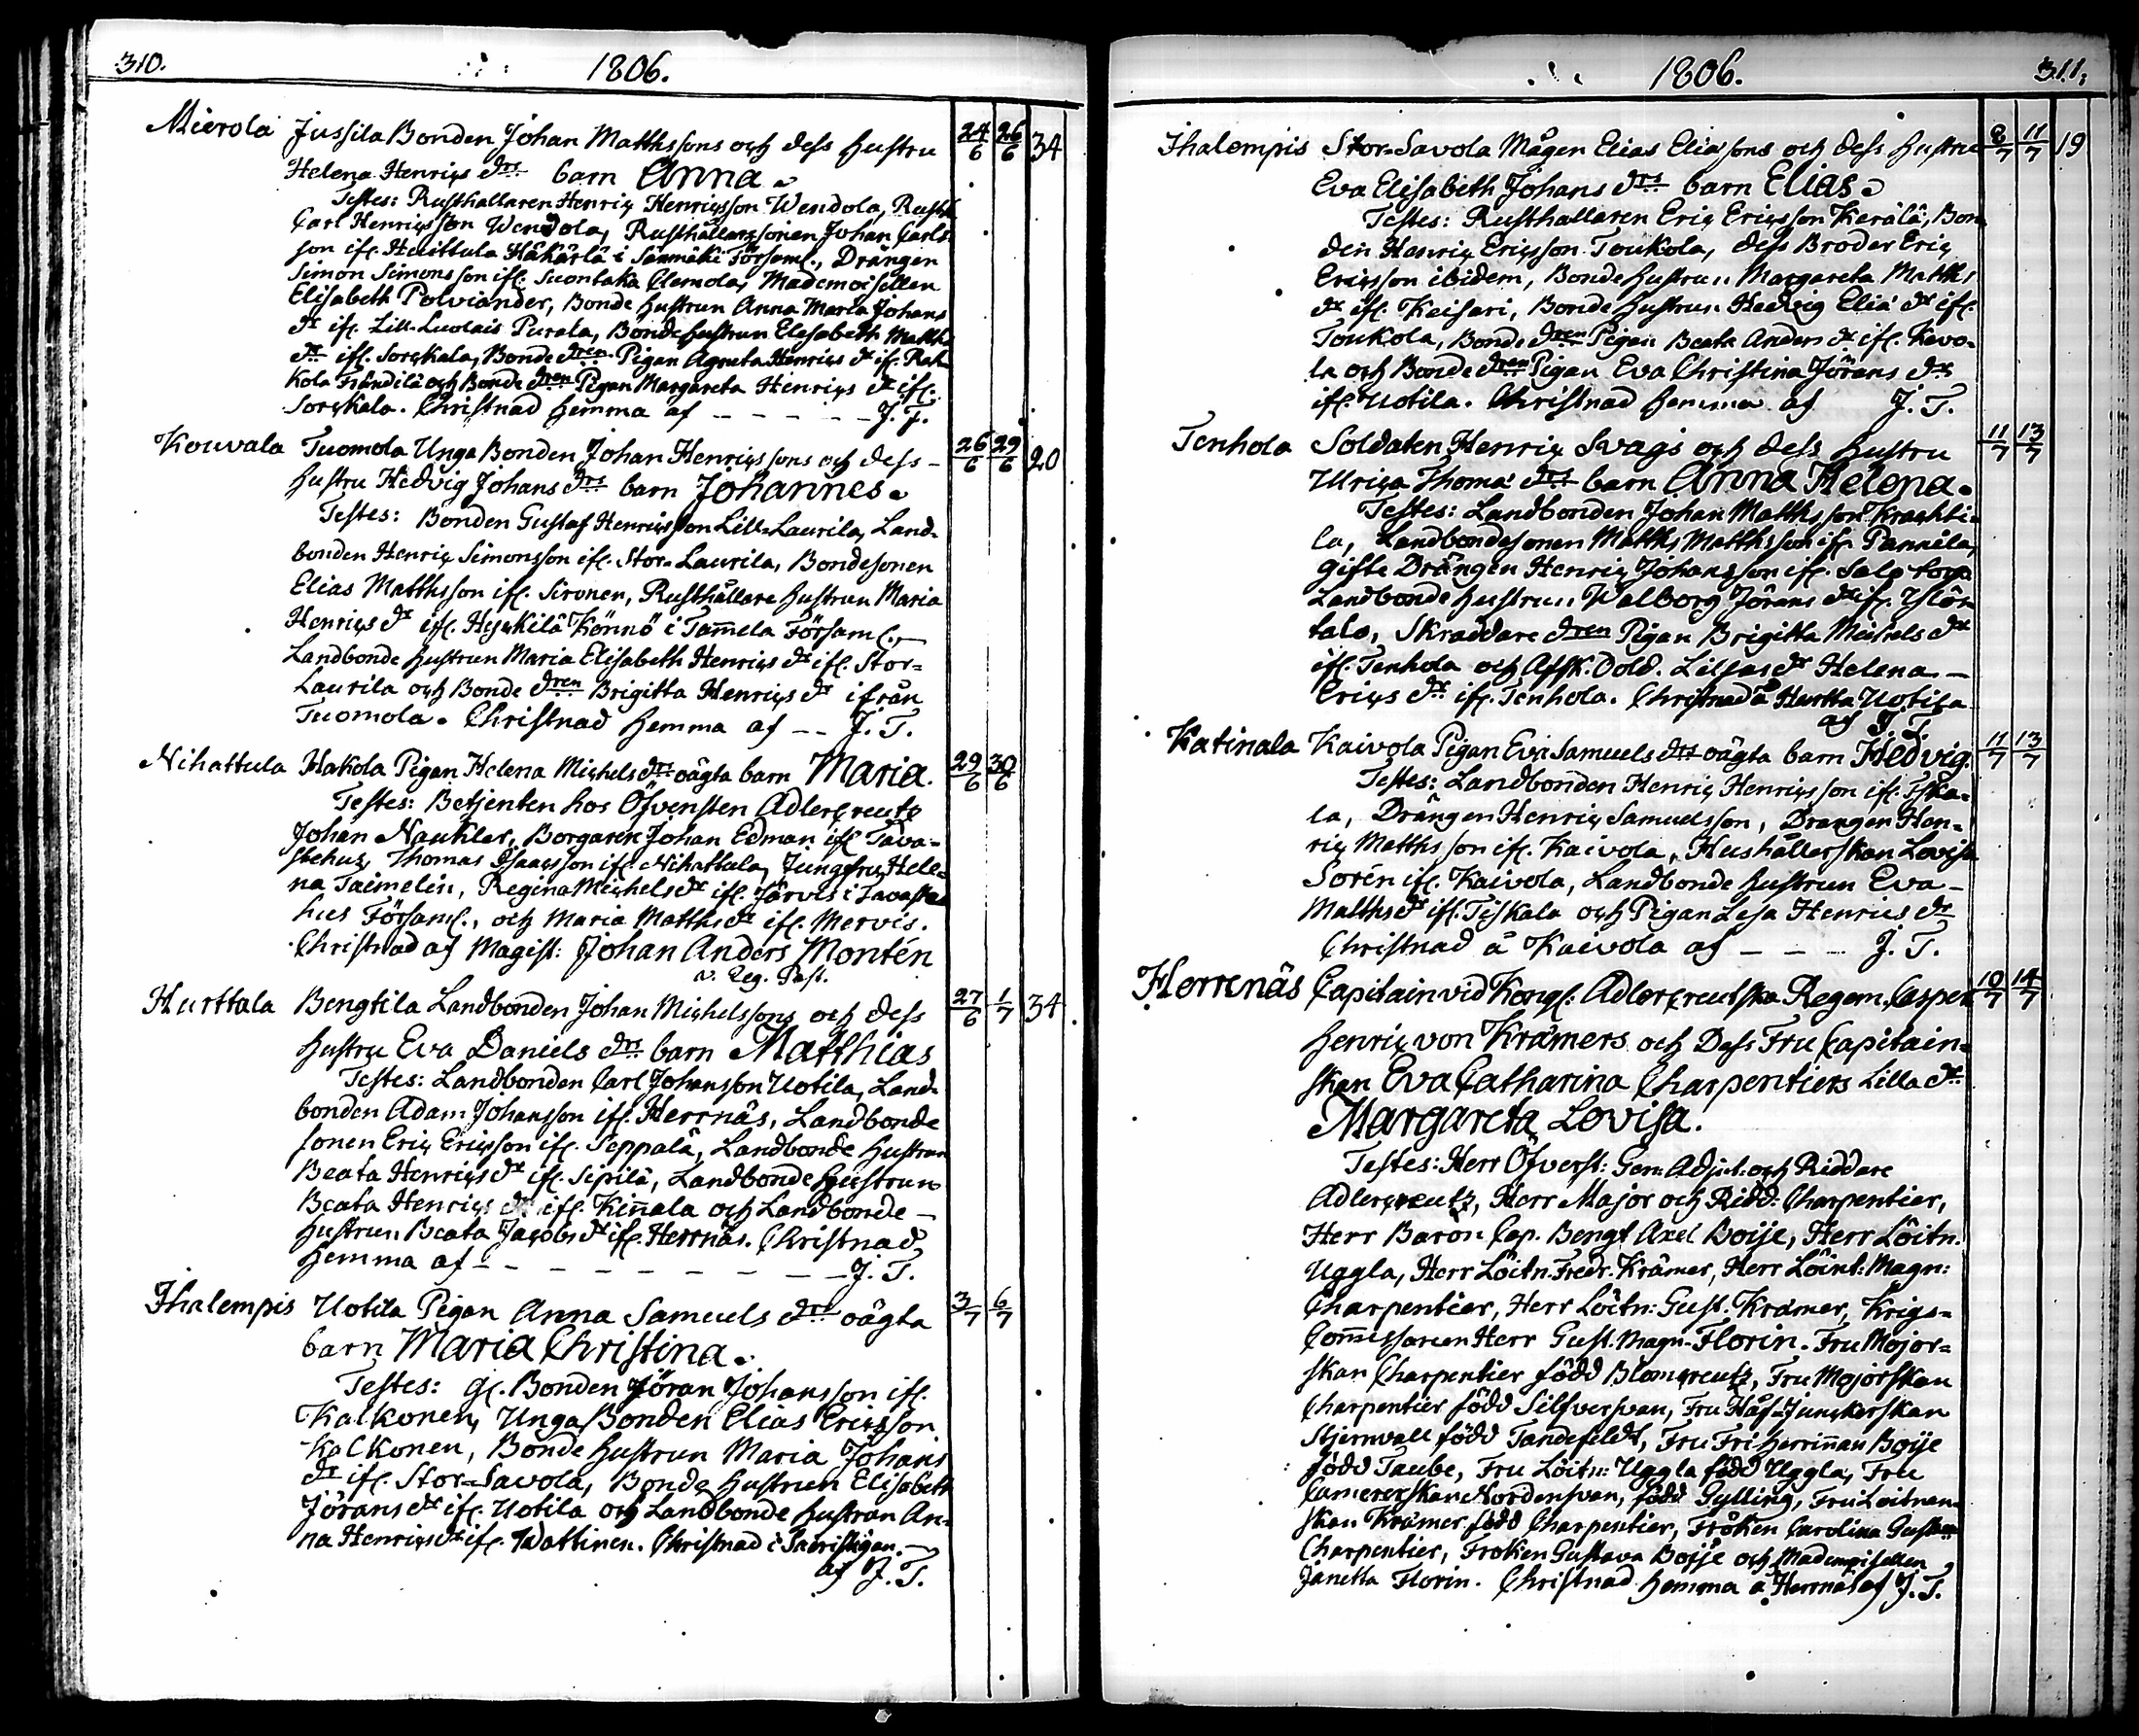 310.
1806.
Mierola Jussila Bonden Johan Matthssons och dess hustru 24/6 26/6 34
Helena Henrics drs barn Anna.
Testes: Rusthållaren Henric Henricsson Wendola, Rusth.
Carl Henricsson Wendola, Rusthållaresonen Johan Carls-
son ifr. Heittula Häkärlä i Sämmäki Församl., Drängen
Simon Simonsson ifr. Suontaka Clemola, Mademoisellen
Elisabeth Polviander, Bonde hustrun Anna Maria Johans
dr ifr. Lill-Luolais Purala, Bonde hustrun Elisabeth Matths
dr ifr. Sorckala, Bonde dren Pigan Agneta Henrics dr ifr. Rah-
kola Frändilä och Bonde dren Pigan Margareta Henrics dr ifr.
Sorckala. Christnad hemma af - - - - - J. T.
Kouvala Tuomola Unga Bonden Johan Henricssons och dess - 26/6 29/6 20
hustru Hedvig Johans drs barn Johannes.
Testes: Bonden Gustaf Henricsson Lill-Laurila, Land-
bonden Henric Simonsson ifr. Stor-Laurila, Bondesonen
Elias Matthsson ifr. Sironen, Rusthållare hustrun Maria
Henrics dr ifr. Heyckilä Könnö i Tam̄ela Församl.,
Landbonde hustrun Maria Elisabeth Henrics dr ifr. Stor-
Laurila och Bonde dren Brigitta Henrics dr ifrån
Tuomola. Christnad hemma af - - J. T.
Nihattula Hakola Pigan Helena Michels drs oägta barn Maria. 29/6 30/6
Testes: Betjenten hos Öfversten Adlercreutz
Johan Naukler, Borgaren Johan Edman ifr Tava-
stehus, Thomas Isaacsson ifr. Nihattula, Jungfru Hele-
na Taimelin, Regina Michels dr ifr. Järvis i Tavaste
hus Församl., och Maria Matths dr ifr. Mervis.
Christnad af Magist: Johan Anders Montén
v. Reg. Past.
Hurttala Bengtila Landbonden Johan Michelssons och dess 27/6 1/7 34
hustru Eva Daniels drs barn Matthias
Testes: Landbonden Carl Johansson Uotila, Land-
bonden Adam Johansson ifr. Herrnäs, Landbonde
sonen Eric Ericsson ifr. Seppälä, Landbonde hustrun
Beata Henrics dr ifr. Sipilä, Landbonde hustrun
Beata Henrics dr ifr. Kin̄ala och Landbonde -
hustrun Beata Jacobs dr ifr. Herrnäs. Christnad
hemma af - - - - - - - - J. T.
Ihalempis Uotila Pigan Anna Samuels drs oägta 3/7 6/7
barn Maria Christina.
Testes: gl. Bonden Jöran Johansson ifr.
Kalkonen, Unga Bonden Elias Ericsson
Kalkonen, Bonde hustrun Maria Johans
dr ifr. Stor-Savola, Bonde hustrun Elisabeth
Jörans dr ifr. Uotila och Landbonde hustrun An-
na Henrics dr ifr. Wattinen. Christnad i Sacristigan.
af J. T.
1806.
311.
Ihalempis Stor-Savola Mågen Elias Eliæsons och dess hustru 8/7 11/7 19
Eva Elisabeth Johans drs barn Elias.
Testes: Rusthållaren Eric Ericsson Kerälä, Bon-
den Henric Ericsson Toukola, dess Broder Eric
Ericsson ibidem, Bonde hustrun Margareta Matths
dr ifr. Keisari, Bonde hustrun Hedvig Eliæ dr ifr.
Toukola, Bonde dren Pigan Beata Anders dr ifr. Kavo-
la och Bonde dren Pigan Eva Christina Jörans dr
ifr. Uotila. Christnad hemma af J. T.
Tenhola Soldaten Henric Svags och dess hustru 11/7 13/7
Ulrica Thomæ drs barn Anna Helena.
Testes: Landbonden Johan Matthsson Krachti-
la, Landbondesonen Matths Matthsson ifr Pannila,
gifte Drängen Henric Johansson ifr. Salo torp
Landbonde hustrun Valborg Jörans dr ifr. Ylön-
talo, Skräddare dren Pigan Brigitta Michels dr
ifr. Tenhola och Afsk. Sold. Liljas dr Helena -
Erics dr ifr. Tenhola. Christnad å Hurtta Uotila
af J. T.
Katinala Kaivola Pigan Eva Samuels drs oägta barn Hedvig. 11/7 13/7
Testes: Landbonden Henric Henricsson ifr. Tyska-
la, Drängen Henric Samuelsson, Drängen Hen-
ric Matthsson ifr. Kaivola, Hushållerskan Lovisa
Sorén ifr. Kaivola, Landbonde hustrun Eva -
Matths dr ifr. Tyskala och Pigan Lesa Henrics dr
Christnad å Kaivola af - - - J. T.
Herrenäs Capitain vid Kongl. Adlercreutska Regem. Casper 10/7 14/7
Henric von Kræmers och Dess Fru Capitain-
skan Eva Catharina Charpentiers Lilla dr
Margareta Lovisa.
Testes: Herr Öfverst: Gen: Adjut. och Riddare
Adlercreutz, Herr Major och Ridd: Charpentier,
Herr Baron Cap. Bengt Axel Boije, Herr Löitn.
Uggla, Herr Löitn. Fredr. Kræmer, Herr Löint: Magn:
Charpentier, Herr Löitn: Gust. Kræmer, Krigs-
Com̄issarien Herr Gust. Magn. Florin. Fru Major-
skan Charpentier född Blomcreutz, Fru Majorskan
Charpentier född Silfversvan, Fru Håf-Junckerskan
Stjernvall född Tandefeldt, Fru Friherrin̄an Boije
född Taube, Fru Löitn: Uggla född Uggla, Fru
Camererskan Nordensvan, född Gylling, Fru Loitnan-
skan Kræmer född Charpentier, Fröken Carolina Gustava
Charpentier, Fröken Gustava Boije och Mademoisellen
Janetta Florin. Christnad hemma å Herrnäs af J. T.